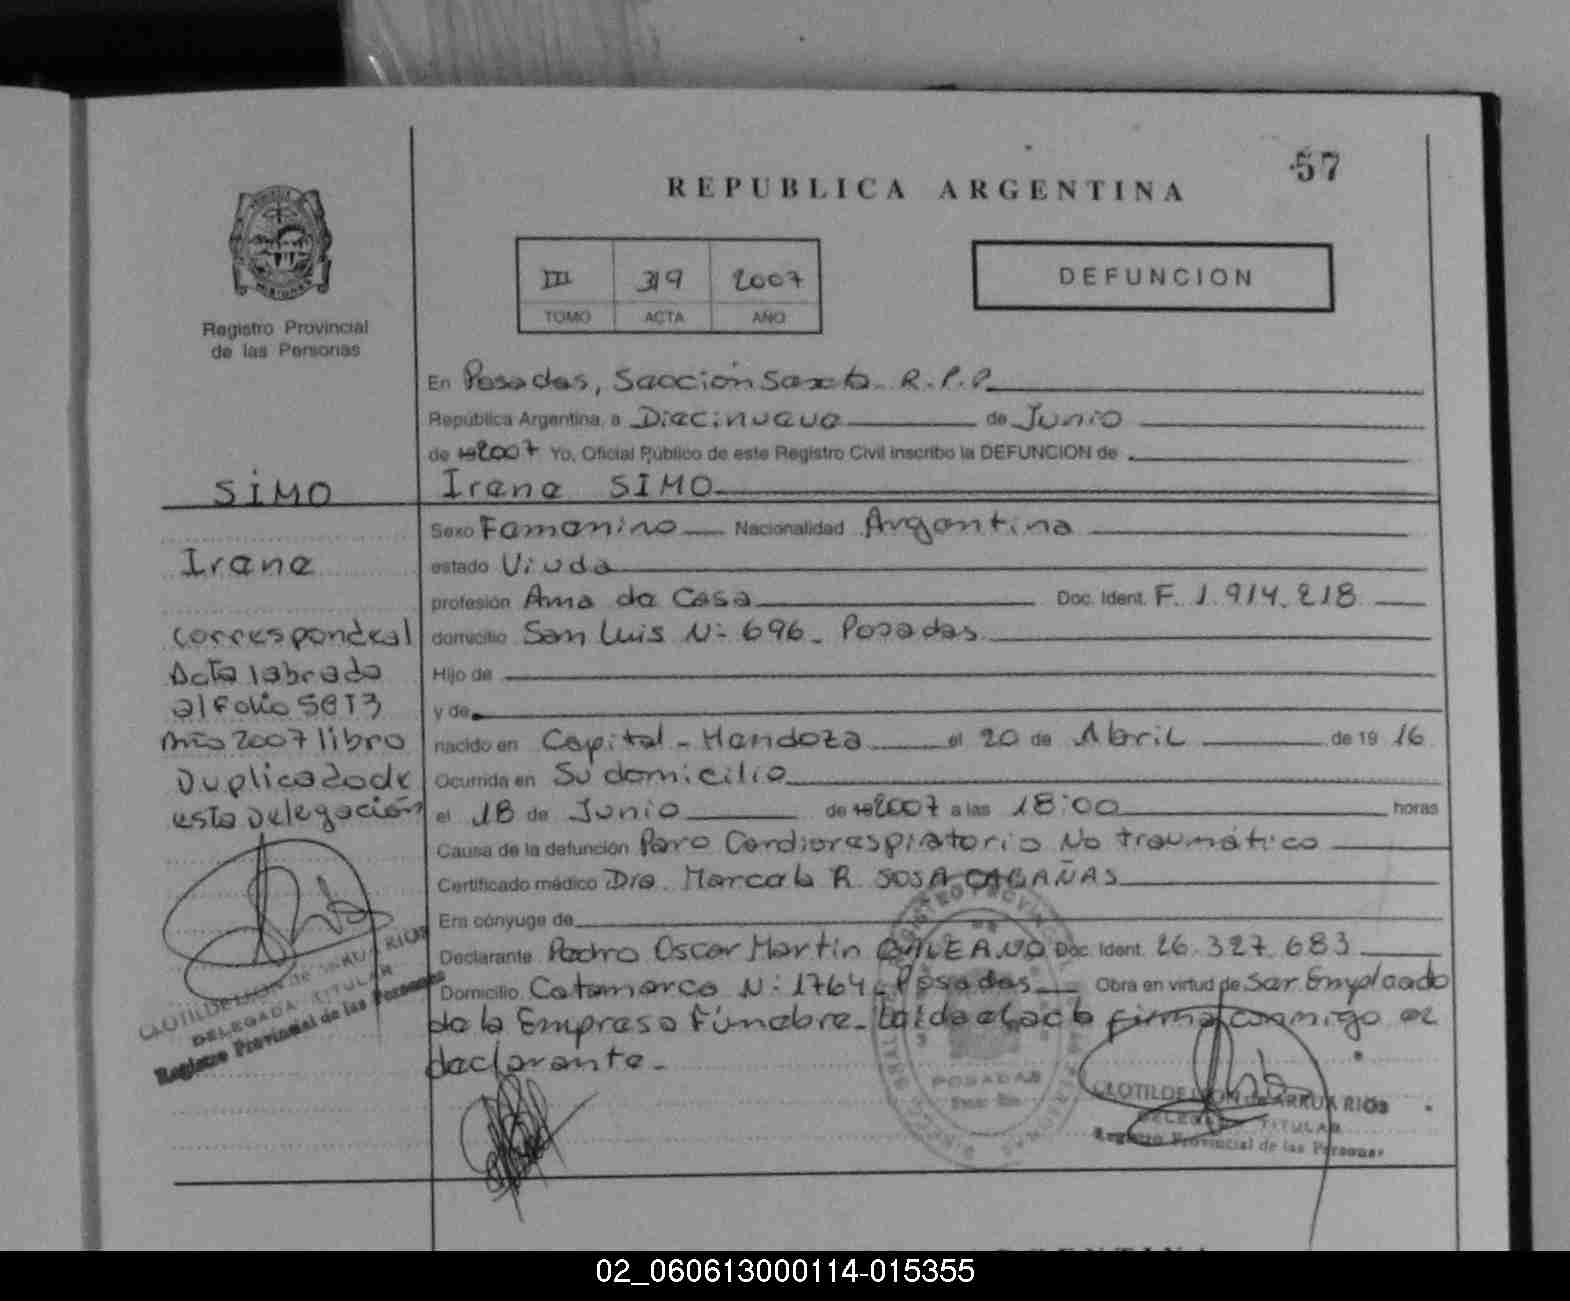 57
REPUBLICA ARGENTINA
III 319 2007
TOMO ACTA AÑO
DEFUNCION
MISIONES
Registro Provincial
de las Personas
En Posadas, Sección Sexta. R.P.P.
República Argentina, a Diecinueve de Junio
de 192007 Yo, Oficial Público de este Registro Civil inscribo la DEFUNCION de
Irene SIMO
SIMO
Irene
Corresponde al
Acta labrada
al Folio
Año 2007 libro
Duplicado de
esta Delegación
Sexo Femenino Nacionalidad Argentina
estado Viuda
profesión Ama de Casa Doc. Ident. F. 1.914.218
domicilio San Luis N: 696 - Posadas
Hijo de
y de
nacido en Capital - Mendoza el 20 de Abril de 1916
Ocurrida en Su domicilio
el 18 de Junio de 192007 a las 18:00 horas
Causa de la defunción Paro Cardiorespiratorio No traumático
Certificado médico Dra. Marcela R. SOSA CABAÑAS
Era cónyuge de
Declarante Pedro Oscar Martin GALEANO Doc. Ident. 26.327.683
Domicilio Catamarca N: 1764 - Posadas Obra en virtud de Ser Empleado
de la Empresa Fúnebre. Leída el acta firma conmigo el
declarante.
CLOTILDE LEON de ARRUA RIOS
DELEGADA TITULAR
Registro Provincial de las Personas
REGISTRO PROVINCIAL DE LAS PERSONAS
POSADAS
CLOTILDE LEON de ARRUA RIOS
DELEGADA TITULAR
Registro Provincial de las Personas
02_060613000114-015355